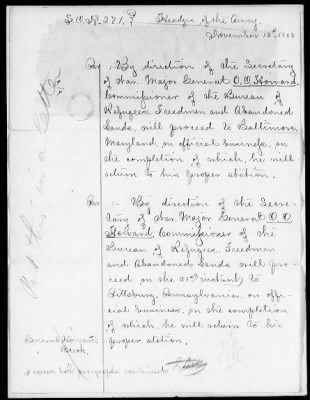 S.O. No. 271. Headqrs of the Army.
November 12th, 1868
Par :- By direction of the Secretary
of War Major General O. O. Howard,
Commissioner of the Bureau of
Refugees, Freedmen and Abandoned
Lands, will proceed to Baltimore,
Maryland, on official business, on
the completion of which, he will
return to his proper station.
Par :- By direction of the Secre-
tary of War Major General O. O.
Howard, Commissioner of the
Bureau of Refugees, Freedmen
and Abandoned Lands will pro-
ceed on the instant, to
Pittsburg, Pennsylvania, on offi-
cial business, on the completion
of which, he will return to his
proper station.
General Howard's
Put this in a letter